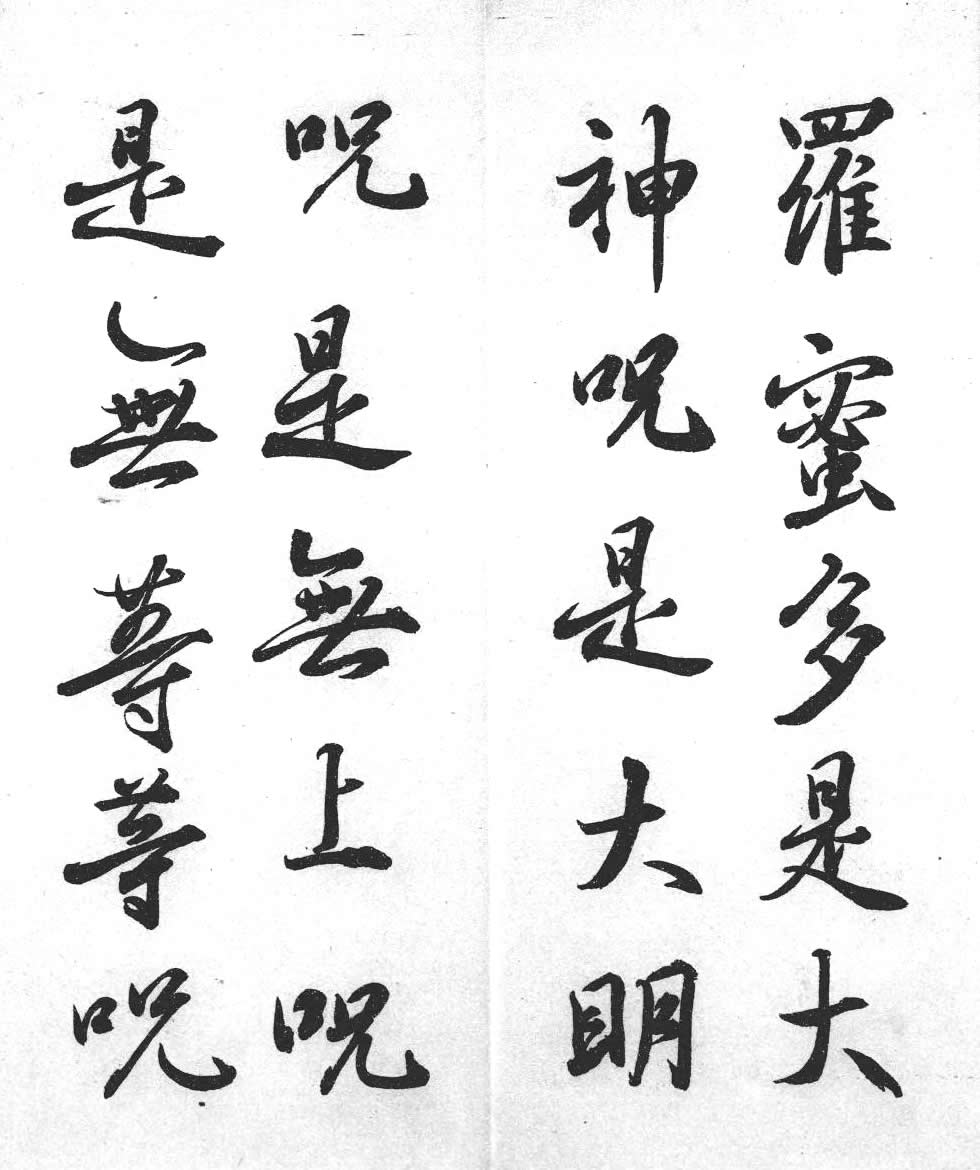 羅蜜多是大
神咒是大明
咒是無上咒
是無等等咒